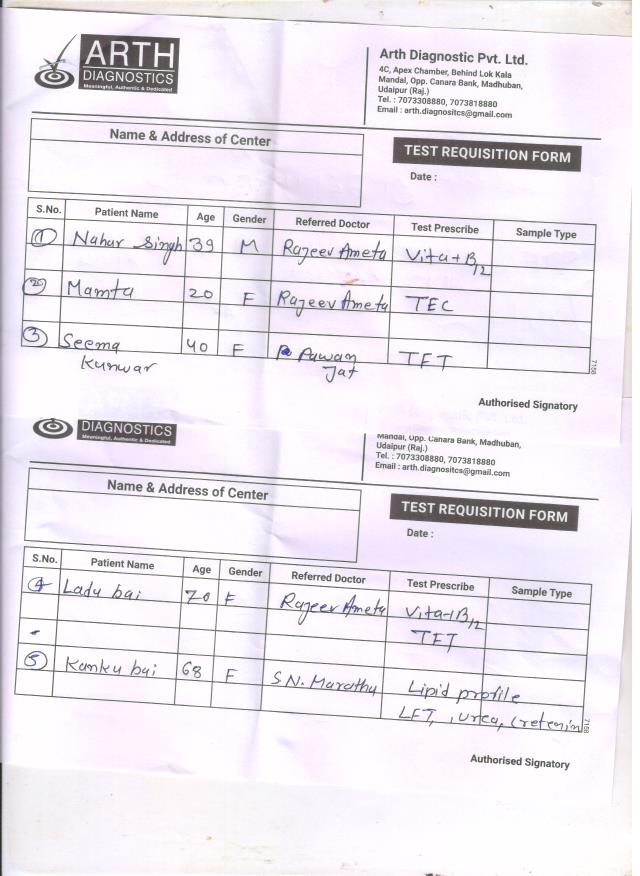 ARTH
DIAGNOSTICS
Meaningful, Authentic & Dedicated
Arth Diagnostic Pvt. Ltd.
4C, Apex Chamber, Behind Lok Kala
Mandal, Opp. Canara Bank, Madhuban,
Udaipur (Raj.)
Tel. : 7073308880, 7073818880
Email : arth.diagnositcs@gmail.com
Name & Address of Center
TEST REQUISITION FORM
Date :
S.No. Patient Name Age Gender Referred Doctor Test Prescribe Sample Type
1 Nahar Singh 39 M Rajeev Ameta Vita+B12
2 Mamta 20 F Rajeev Ameta TEC
3 Seema 40 F Pawan TFT
Kunwar Jat
7158
Authorised Signatory
DIAGNOSTICS
Meaningful, Authentic & Dedicated
Mandal, Opp. Canara Bank, Madhuban,
Udaipur (Raj.)
Tel. : 7073308880, 7073818880
Email : arth.diagnositcs@gmail.com
Name & Address of Center
TEST REQUISITION FORM
Date :
S.No. Patient Name Age Gender Referred Doctor Test Prescribe Sample Type
4 Ladu bai 70 F Rajeev Ameta Vita+B12
TFT
5 Kanku bai 68 F S.N. Marathu Lipid profile
LFT, urea, Cretenin
7158
Authorised Signatory